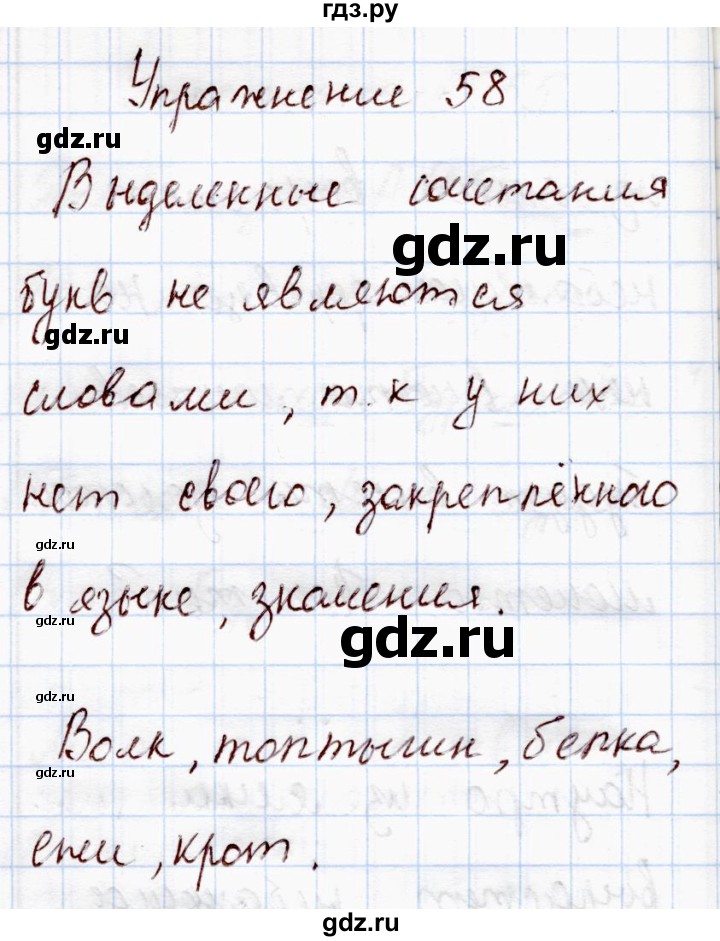 гдз.ру
Упражнение 58
gdz.ru
Выделенные сочетания
gdz.ru
букв не являются
gdz.ru
словами, т.к у них
нет своего, закреплённого
gdz.ru
в языке, значения.
gdz.ru
gdz.ru
gdz.ru
Волк, топтыгин, белка,
gdz.ru
ежи, крот.
gdz.ru
gdz.ru